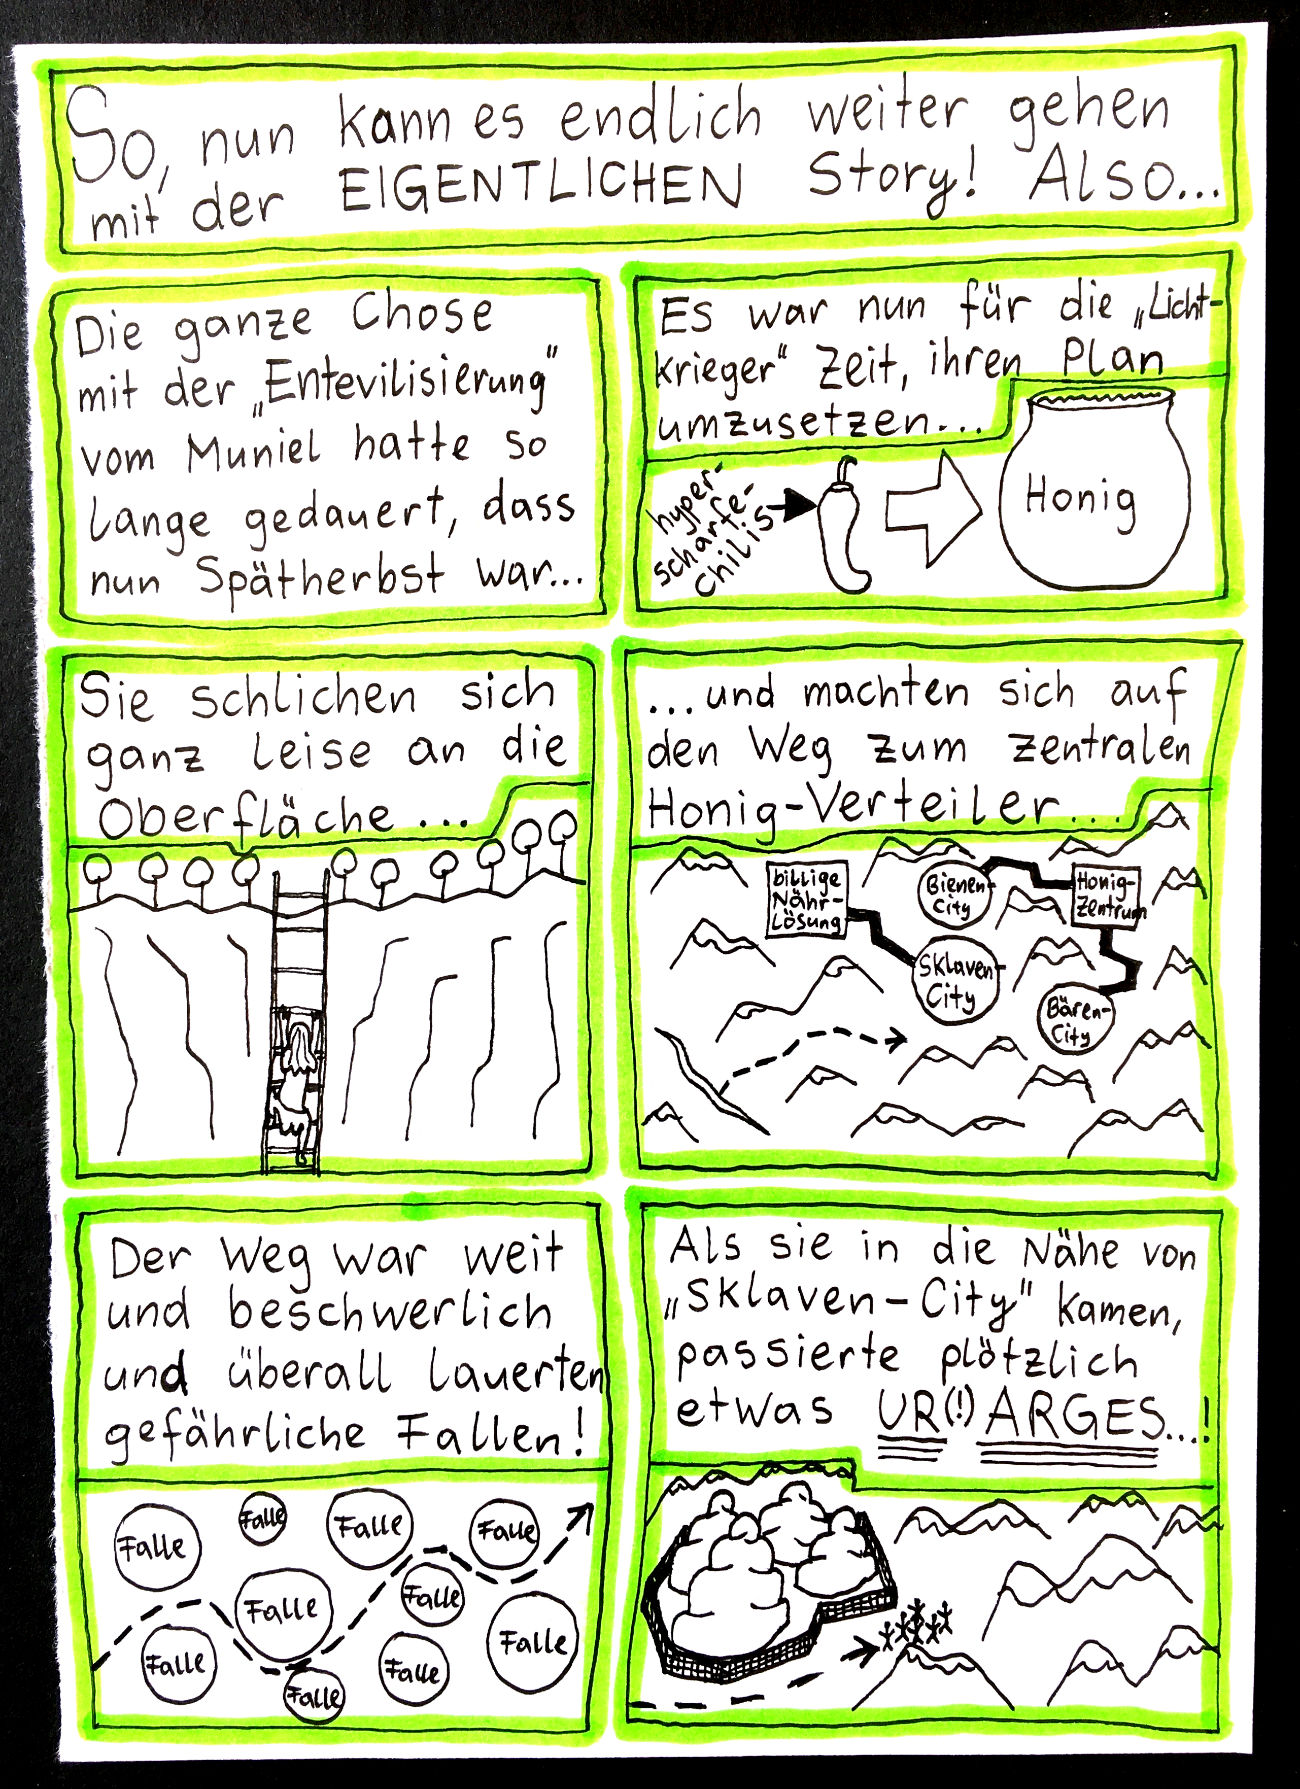 So, nun kann es endlich weiter gehen
mit der EIGENTLICHEN Story! Also...
Die ganze Chose
mit der „Entevilisierung"
vom Muniel hatte so
lange gedauert, dass
nun Spätherbst war...
Es war nun für die „Licht-
krieger" Zeit, ihren Plan
umzusetzen...
hyper-
scharfe-
Chilis
Honig
Sie schlichen sich
ganz leise an die
Oberfläche...
...und machten sich auf
den Weg zum zentralen
Honig-Verteiler...
billige
Nähr-
Lösung
Bienen-
City
Honig-
Zentrum
Sklaven-
City
Bären-
City
Der Weg war weit
und beschwerlich
und überall lauerten
gefährliche Fallen!
Falle
Falle
Falle
Falle
Falle
Falle
Falle
Falle
Falle
Falle
Als sie in die Nähe von
„Sklaven-City" kamen,
passierte plötzlich
etwas UR(!) ARGES...!